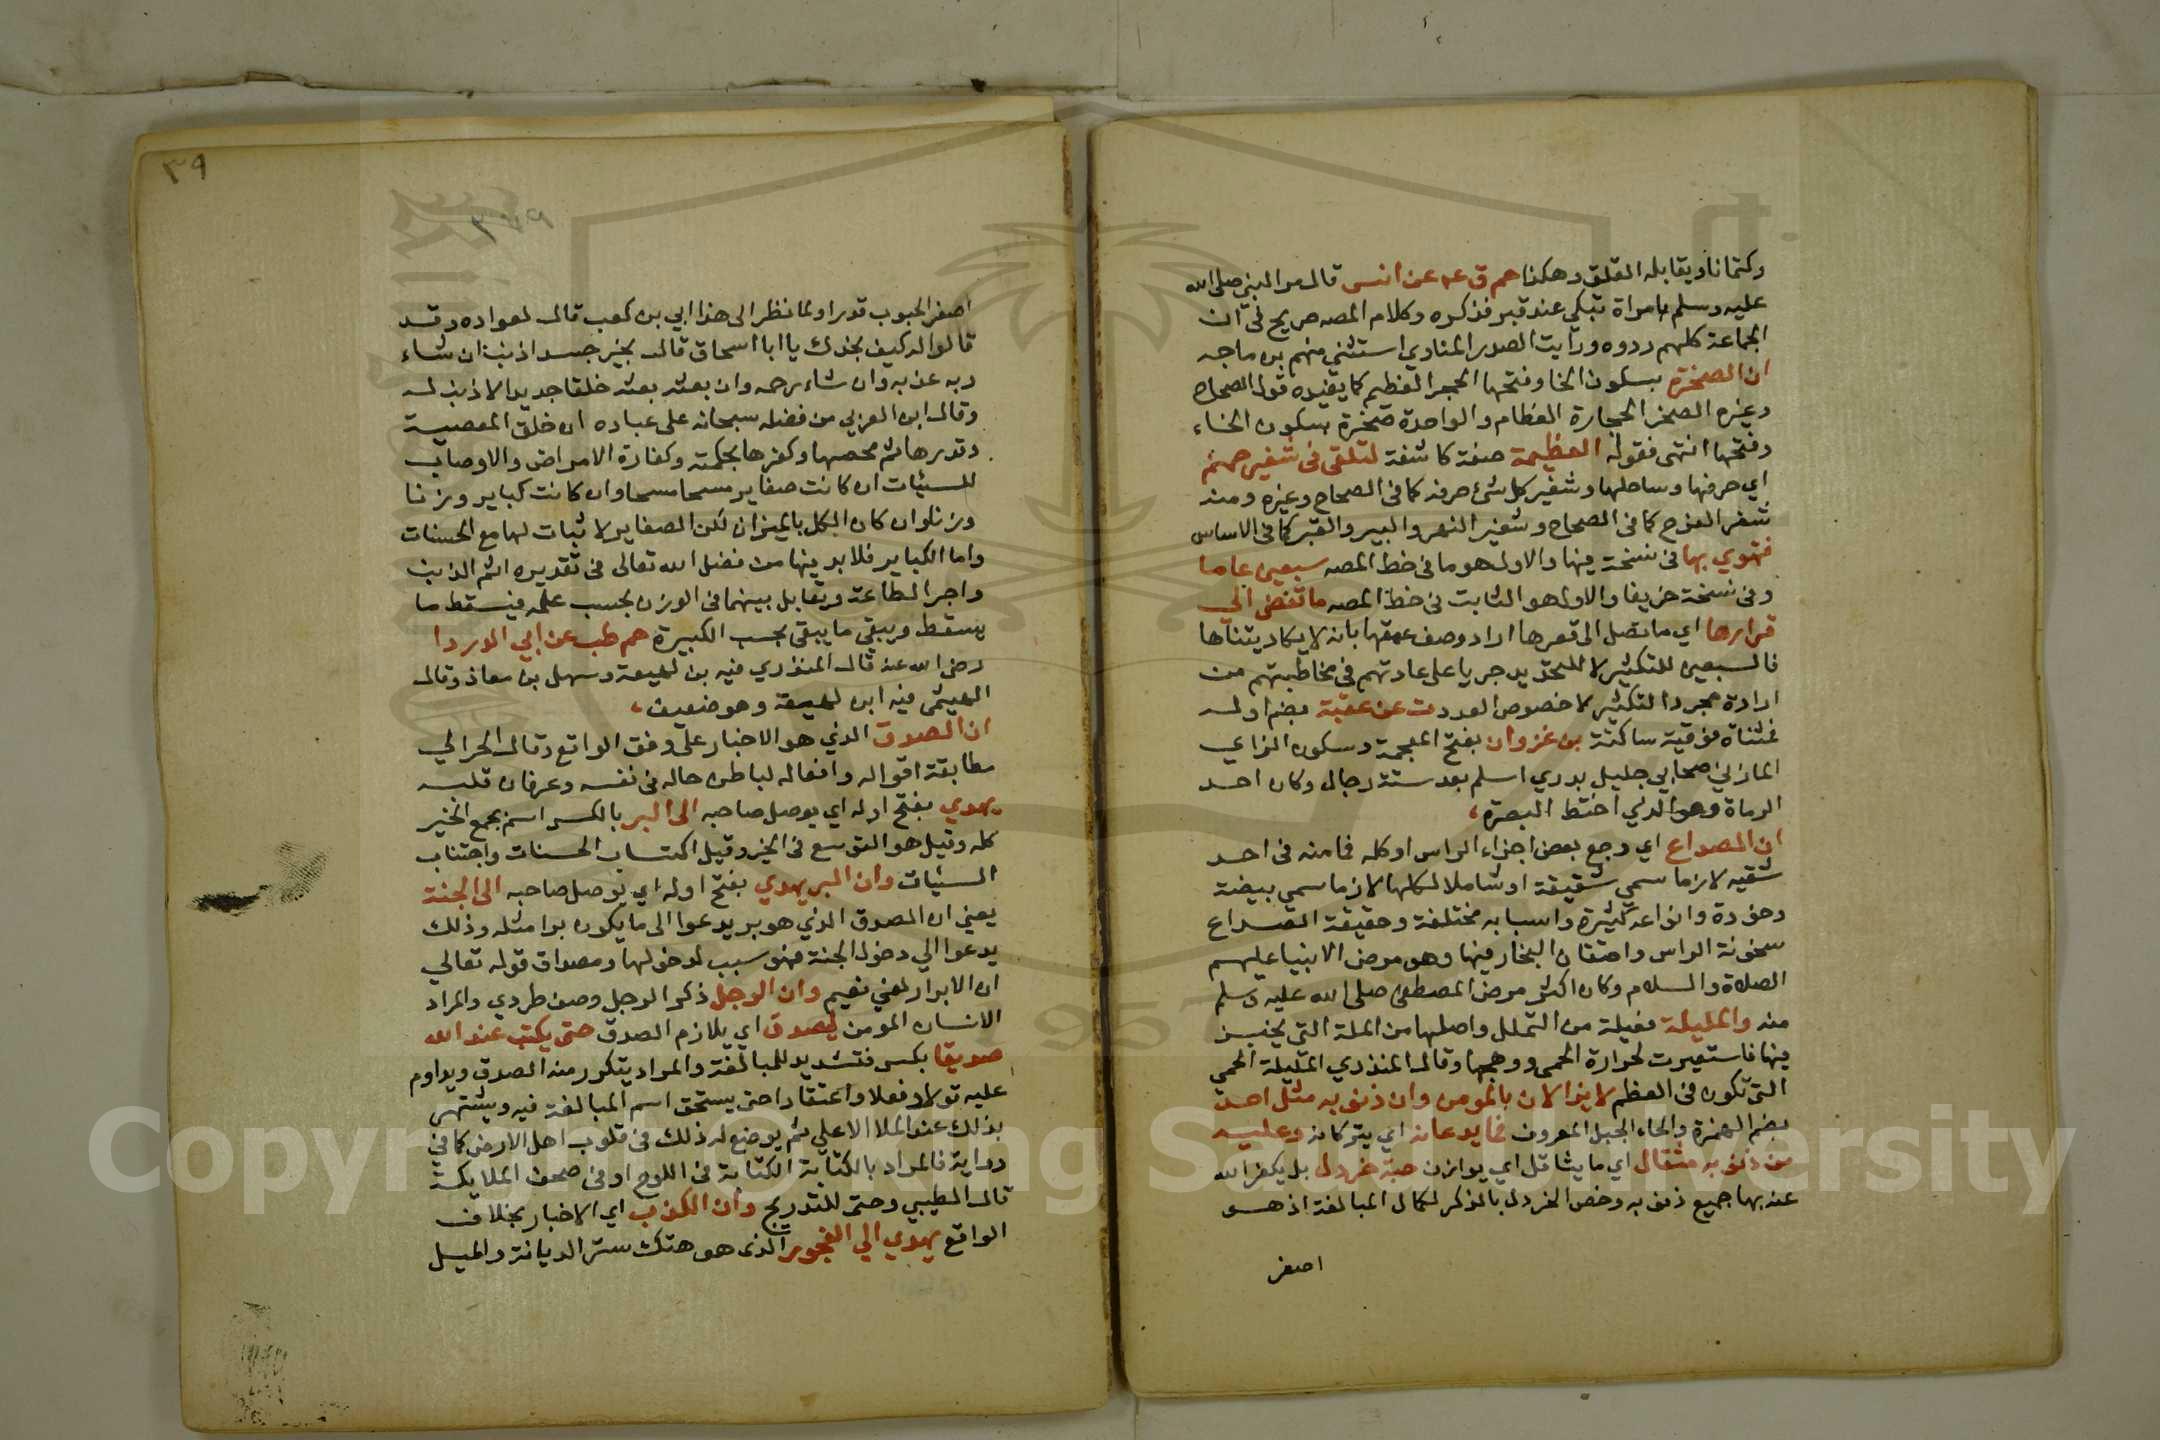 وكتمانا ويقابله القلق وهكذا حم ق عه عن انس قال مر النبي صلى الله
عليه وسلم بامراة تبكي عند قبر فذكره وكلام المصه صريح في ان
الجماعة كلهم رووه ورايت الصدر المناوي استثنى منهم بن ماجه
ان الصخرة بسكون الخا وفتحها الحجر العظيم كما يفيده قول الصحاح
وغيره الصخر الحجارة العظام والواحدة صخرة بسكون الخاء
وفتحها انتهى فقوله العظيمة صفة كاشفة لتلقى في شفير جهنم
اي حرفها وساحلها وشفير كل شئ حرفه كما في الصحاح وغيره ومنه
شفر الفرج كما في الصحاح وشفير النهر والبير والقبر كما في الاساس
فتهوي بها في نسخة فيها والاول هو ما في خط المصه سبعين عاما
وفي نسخة خريفا والاول هو الثابت في خط المصه ما تفضي الي
قرارها اي ما تصل الى قعرها اراد وصف عمقها بانه لا يكاد يتناها
فالسبعين للتكثير لا للتحديد جريا على عادتهم في مخاطبتهم من
ارادة مجرد التكثير لا خصوص العدد ت عن عقبة بضم اوله
فمثناة فوقية ساكنة بن غزوان بفتح المعجمة وسكون الزاي
المازني صحابي جليل بدري اسلم بعد ستة رجال وكان احد
الرماة وهو الذي اختط البصرة
ان الصداع اي وجع بعض اجزاء الراس او كله فما منه في احد
شقيه لازما سمي شقيقة او شاملا لكلها لازما سمي بيضة
وخودة وانواعه كثيرة واسبابه مختلفة وحقيقة الصداع
سخونة الراس واحتقان البخار فيها وهو مرض الانبيا عليهم
الصلاة والسلام وكان اكثر مرض المصطفى صلى الله عليه وسلم
منه والمليلة فعيلة من التملل واصلها من الملة التي يخبز
فيها فاستعيرت لحرارة الحمى ووهجها وقال المنذري المليلة الحمي
التي تكون في العظم لا يزالان بالمومن وان ذنوبه مثل احد
بضم الهمزة والحاء الجبل المعروف فما يدعانه اي يتركانه وعليه
من ذنوبه مثقال اي ما يثاقل اي يوازن حبة خردل بل يكفر الله
عنه بها جميع ذنوبه وخص الخردل بالذكر لكمال المبالغة اذ هو
اصغر
٣٩
اصغر الحبوب قدرا ولما نظر الى هذا ابي بن كعب قال لعواده وقد
قالوا له كيف نجدك يا ابا اسحاق قال بخير جسد اخذ بذنبه ان شاء
ربه عذبه وان شاء رحمه وان بعثه بعثه خلقا جديدا لا ذنب له
وقال ابن العربي من فضله سبحانه على عباده ان خلق المعصية
وقدرها ثم محصها وكفرها بحكمته وكفارة الامراض والاوصاب
للسيئات ان كانت صغاير مسحا مسحا وان كانت كباير وزنا
وزنا وان كان الكل بالميزان لكن الصغاير لا ثبات لها مع الحسنات
واما الكباير فلا بد فيها من فضل الله تعالى في تقديره اثم الذنب
واجر الطاعة ويقابل بينهما في الوزن بحسب علمه فيسقط ما
يسقط ويبقى ما يبقى بحسب الكبيرة حم طب عن ابي الدردا
رضي الله عنه قال المنذري فيه بن لهيعة وسهل بن معاذ وقال
الهيثمي فيه ابن لهيعة وهو ضعيف
ان الصدق الذي هو الاخبار على وفق الواقع وقال الحرالي
مطابقة اقواله وافعاله لباطن حاله في نفسه وعرفان قلبه
يهدي بفتح اوله اي يوصل صاحبه الى البر بالكسر اسم يجمع الخير
كله وقيل هو التوسع في الخير وقيل اكتساب الحسنات واجتناب
السيئات وان البر يهدي بفتح اوله اي يوصل صاحبه الى الجنة
يعني ان الصدق الذي هو بر يدعوا الى ما يكون برا مثله وذلك
يدعوا الي دخول الجنة فهو سبب لدخولها ومصداق قوله تعالي
ان الابرار لفي نعيم وان الرجل ذكر الرجل وصف طردي والمراد
الانسان المومن ليصدق اي يلازم الصدق حتى يكتب عند الله
صديقا بكسر فتشديد للمبالغة والمراد يتكرر منه الصدق ويداوم
عليه قولا وفعلا واعتقادا حتى يستحق اسم المبالغة فيه ويشتهر
بذلك عند الملا الاعلى ثم يوضع له ذلك في قلوب اهل الارض كما في
رواية فالمراد بالكتابة الكتابة في اللوح او في صحف الملايكة
قال الطيبي وحتى للتدريج وان الكذب اي الاخبار بخلاف
الواقع يهدي الي الفجور الذي هو هتك ستر الديانة والميل
Copyright © King Saud University
1957